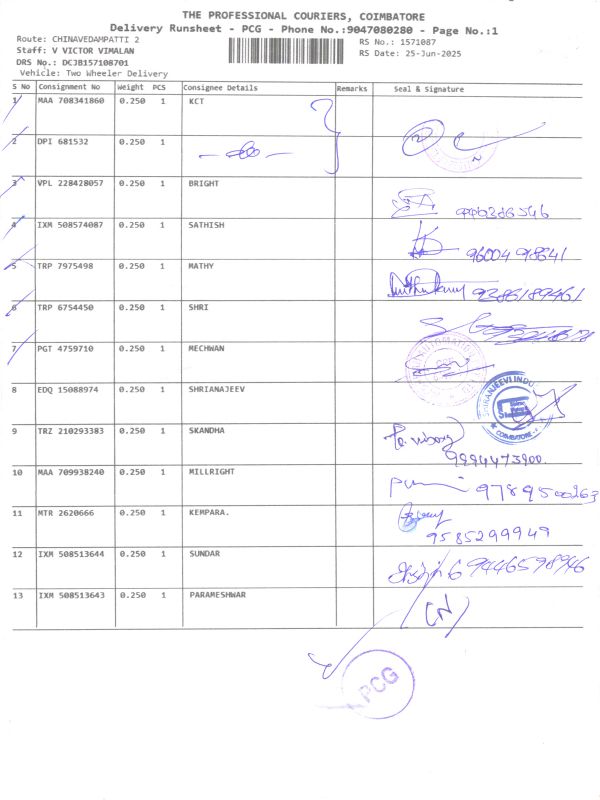 THE PROFESSIONAL COURIERS, COIMBATORE
Delivery Runsheet - PCG - Phone No.:9047080280 - Page No.:1
Route: CHINAVEDAMPATTI 2
RS No.: 1571087
Staff: V VICTOR VIMALAN
RS Date: 25-Jun-2025
DRS No.: DCJB157108701
Vehicle: Two Wheeler Delivery
S No Consignment No Weight PCS Consignee Details Remarks Seal & Signature
1 MAA 708341860 0.250 1 KCT
2 DPI 681532 0.250 1
3 VPL 228428057 0.250 1 BRIGHT
4 IXM 508574087 0.250 1 SATHISH
9600498641
5 TRP 7975498 0.250 1 MATHY
9286189461
6 TRP 6754450 0.250 1 SHRI
7 PGT 4759710 0.250 1 MECHWAN
8 EDQ 15088974 0.250 1 SHRIANAJEEV
COIMBATORE
9 TRZ 210293383 0.250 1 SKANDHA
9994473900.
10 MAA 709938240 0.250 1 MILLRIGHT
9789500263
11 MTR 2620666 0.250 1 KEMPARA.
9585299949
12 IXM 508513644 0.250 1 SUNDAR
9446598946
13 IXM 508513643 0.250 1 PARAMESHWAR
PCG